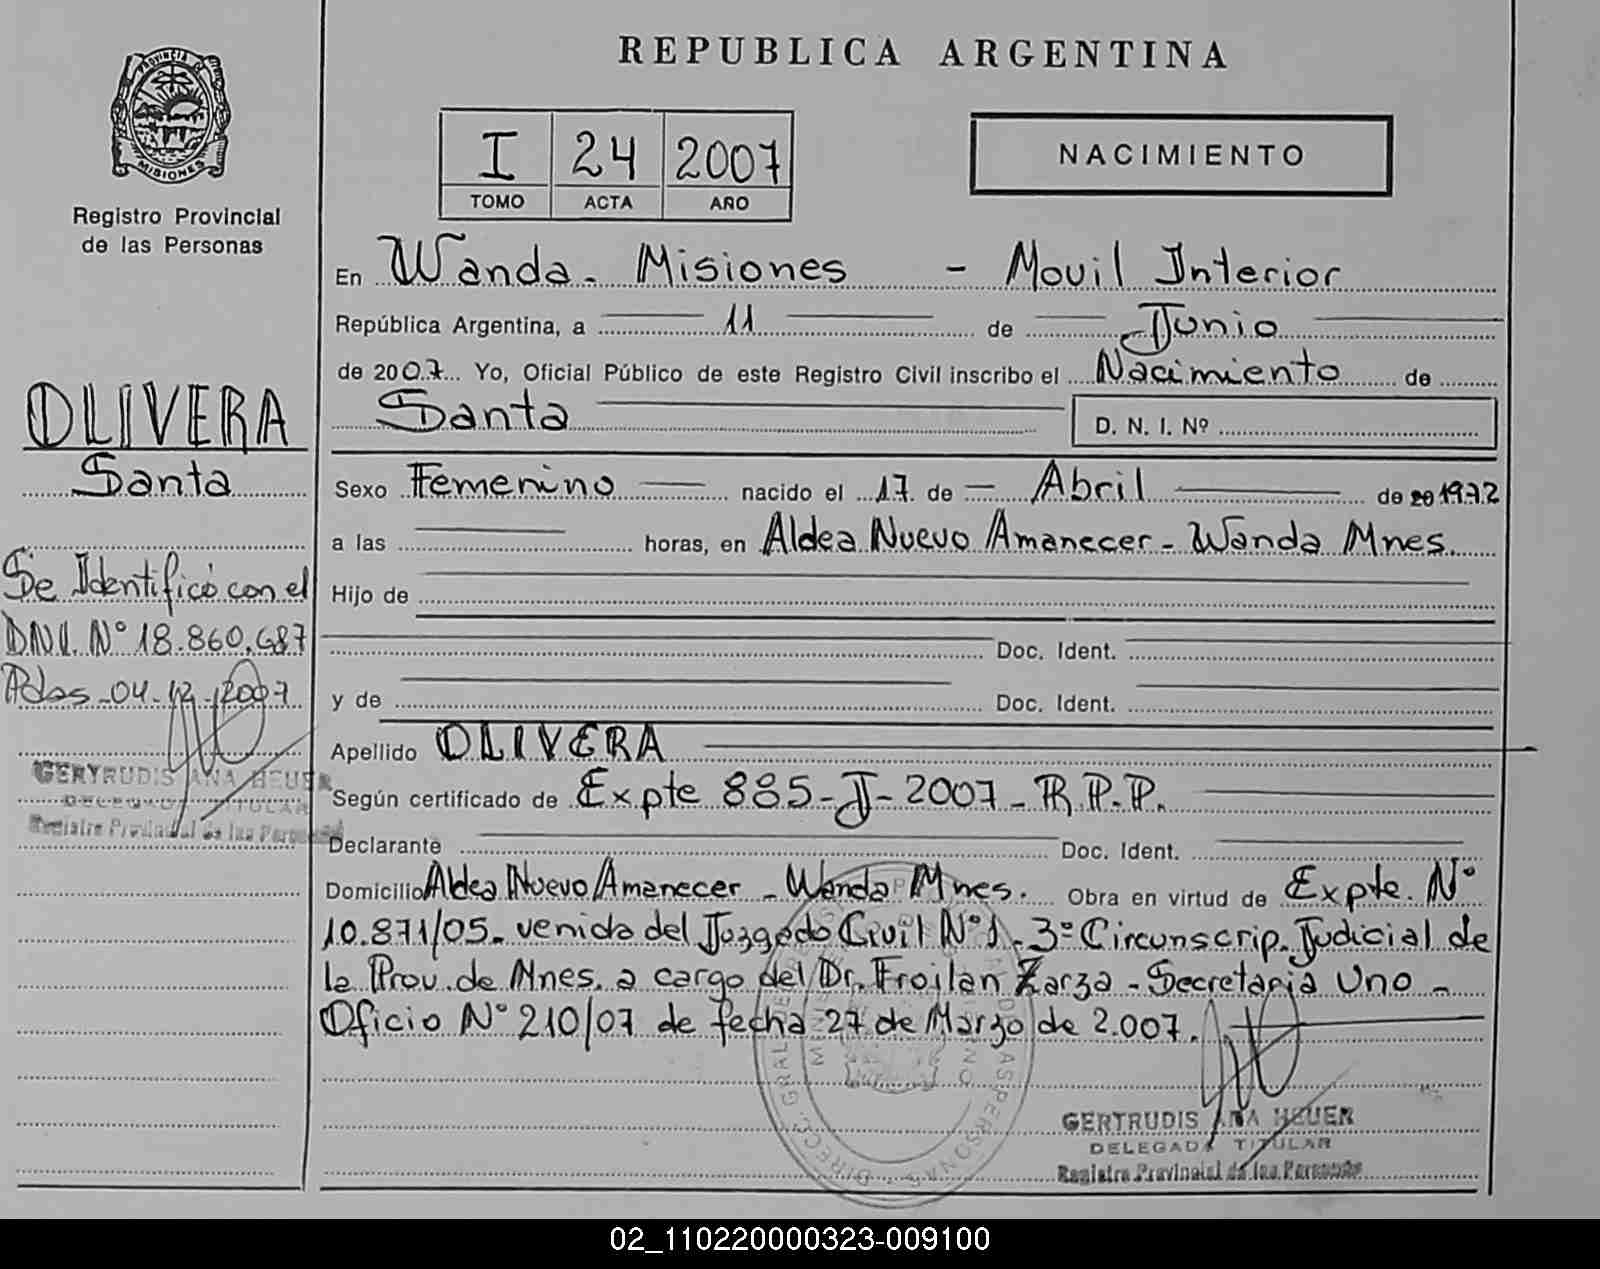 REPUBLICA ARGENTINA
PROVINCIA DE
MISIONES
Registro Provincial
de las Personas
I 24 2007
TOMO ACTA AÑO
NACIMIENTO
En Wanda - Misiones - Movil Interior
República Argentina, a 11 de Junio
de 2007 Yo, Oficial Público de este Registro Civil inscribo el Nacimiento de
Santa
D. N. I. Nº
Sexo Femenino nacido el 17 de Abril de 1972
a las horas, en Aldea Nuevo Amanecer - Wanda Mnes.
Hijo de
Doc. Ident.
y de Doc. Ident.
Apellido OLIVERA
Según certificado de Expte 885-J-2007-R.P.P.
Declarante Doc. Ident.
Domicilio Aldea Nuevo Amanecer - Wanda Mnes. Obra en virtud de Expte. N°
10.871/05. venida del Juzgado Civil N°1 - 3° Circunscrip. Judicial de
la Prov. de Mnes. a cargo del Dr. Froilan Zarza - Secretaria Uno -
Oficio N° 210/07 de fecha 27 de Marzo de 2.007.
GERTRUDIS ANA HEUER
DELEGADA TITULAR
Registro Provincial de las Personas
OLIVERA
Santa
Se Identificó con el
D.N.I. N° 18.860.687
Pdas - 04-12-2007
GERTRUDIS ANA HEUER
DELEGADA TITULAR
Registro Provincial de las Personas
02_110220000323-009100